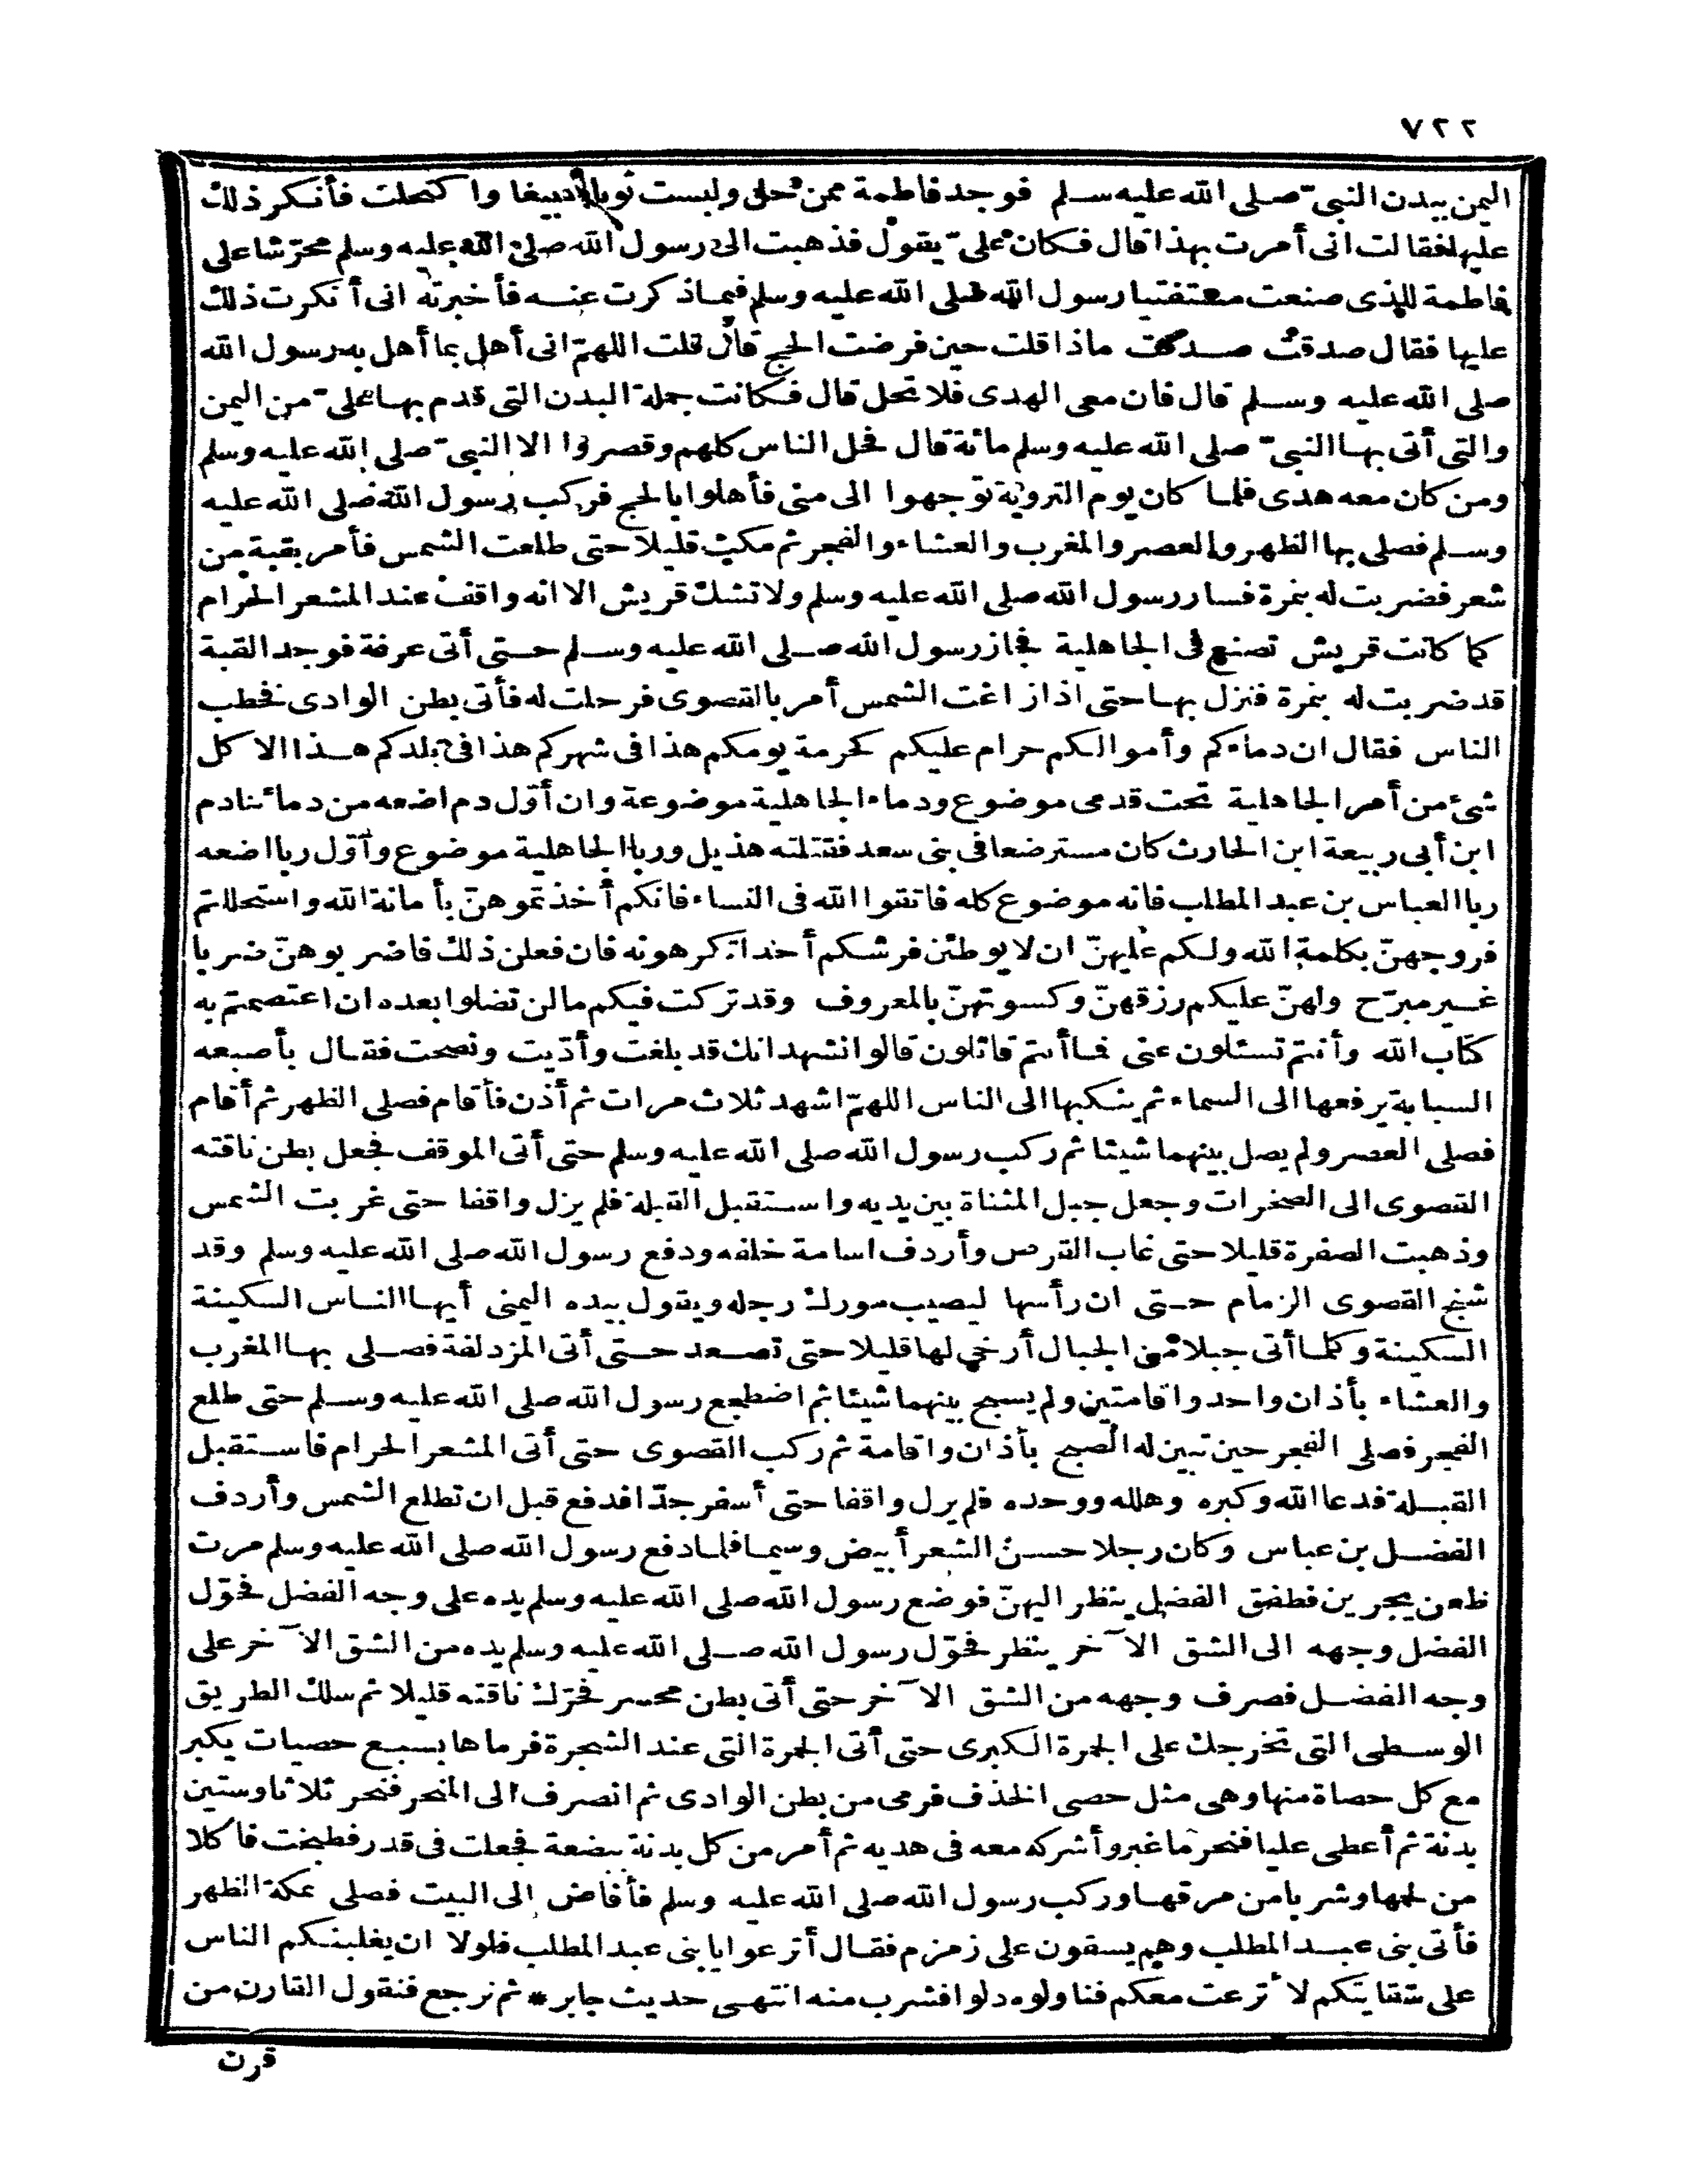 ٧٢٢
اليمن ببدن النبىّ صلى الله عليه سلم فوجد فاطمة ممن حلى ولبست ثوبا صبيغا واكتحلت فأنكر ذلك
عليها فقالت انى أمرت بهذا قال فكان علىّ يقول فذهبت الى رسول الله صلى الله عليه وسلم محرّشا على
فاطمة للذى صنعت مستفتيا رسول الله صلى الله عليه وسلم فيما ذكرت عنه فأخبرته انى أنكرت ذلك
عليها فقال صدقت صدقت ماذا قلت حين فرضت الحج قال قلت اللهمّ انى أهل بما أهل به رسول الله
صلى الله عليه وسلم قال فان معى الهدى فلا تحل قال فكانت جملة البدن التى قدم بها علىّ من اليمن
والتى أتى بها النبىّ صلى الله عليه وسلم مائة قال فحل الناس كلهم وقصروا الا النبىّ صلى الله عليه وسلم
ومن كان معه هدى فلما كان يوم التروية توجهوا الى منى فأهلوا بالحج فركب رسول الله صلى الله عليه
وسلم فصلى بها الظهر والعصر والمغرب والعشاء والفجر ثم مكث قليلا حتى طلعت الشمس فأمر بقبة من
شعر فضربت له بنمرة فسار رسول الله صلى الله عليه وسلم ولا تشك قريش الا انه واقف عند المشعر الحرام
كما كانت قريش تصنع فى الجاهلية فجاز رسول الله صلى الله عليه وسلم حتى أتى عرفة فوجد القبة
قد ضربت له بنمرة فنزل بها حتى اذا زاغت الشمس أمر بالقصوى فرحلت له فأتى بطن الوادى فخطب
الناس فقال ان دماءكم وأموالكم حرام عليكم كحرمة يومكم هذا فى شهركم هذا فى بلدكم هذا الا كل
شئ من أمر الجاهلية تحت قدمى موضوع ودماء الجاهلية موضوعة وان أوّل دم اضعه من دمائنا دم
ابن أبى ربيعة ابن الحارث كان مسترضعا فى بنى سعد فقتلته هذيل وربا الجاهلية موضوع وأوّل ربا اضعه
ربا العباس بن عبد المطلب فانه موضوع كله فاتقوا الله فى النساء فانكم أخذتموهنّ بأمانة الله واستحللتم
فروجهنّ بكلمة الله ولكم عليهنّ ان لا يوطئن فرشكم أحدا تكرهونه فان فعلن ذلك فاضربوهنّ ضربا
غير مبرّح ولهنّ عليكم رزقهنّ وكسوتهنّ بالمعروف وقد تركت فيكم ما لن تضلوا بعده ان اعتصمتم به
كتاب الله وأنتم تسئلون عنى فما أنتم قائلون قالوا نشهد انك قد بلغت وأدّيت ونصحت فقال بأصبعه
السبابة يرفعها الى السماء ثم ينكبها الى الناس اللهمّ اشهد ثلاث مرات ثم أذن فأقام فصلى الظهر ثم أقام
فصلى العصر ولم يصل بينهما شيئا ثم ركب رسول الله صلى الله عليه وسلم حتى أتى الموقف فجعل بطن ناقته
القصوى الى الصخرات وجعل جبل المشاة بين يديه واستقبل القبلة فلم يزل واقفا حتى غربت الشمس
وذهبت الصفرة قليلا حتى غاب القرص وأردف اسامة خلفه ودفع رسول الله صلى الله عليه وسلم وقد
شنق القصوى الزمام حتى ان رأسها ليصيب مورك رجله ويقول بيده اليمنى أيها الناس السكينة
السكينة وكلما أتى جبلا من الجبال أرخى لها قليلا حتى تصعد حتى أتى المزدلفة فصلى بها المغرب
والعشاء بأذان واحد واقامتين ولم يسبح بينهما شيئا ثم اضطجع رسول الله صلى الله عليه وسلم حتى طلع
الفجر فصلى الفجر حين تبين له الصبح بأذان واقامة ثم ركب القصوى حتى أتى المشعر الحرام فاستقبل
القبلة فدعا الله وكبره وهلله ووحده فلم يزل واقفا حتى أسفر جدّا فدفع قبل ان تطلع الشمس وأردف
الفضل بن عباس وكان رجلا حسن الشعر أبيض وسيما فلما دفع رسول الله صلى الله عليه وسلم مرت
ظعن يجرين فطفق الفضل ينظر اليهنّ فوضع رسول الله صلى الله عليه وسلم يده على وجه الفضل فحوّل
الفضل وجهه الى الشق الآخر ينظر فحوّل رسول الله صلى الله عليه وسلم يده من الشق الآخر على
وجه الفضل فصرف وجهه من الشق الآخر حتى أتى بطن محسر فحرّك ناقته قليلا ثم سلك الطريق
الوسطى التى تخرجك على الجمرة الكبرى حتى أتى الجمرة التى عند الشجرة فرماها بسبع حصيات يكبر
مع كل حصاة منها وهى مثل حصى الخذف فرمى من بطن الوادى ثم انصرف الى المنحر فنحر ثلاثا وستين
بدنة ثم أعطى عليا فنحر ما غبر وأشركه معه فى هديه ثم أمر من كل بدنة ببضعة فجعلت فى قدر فطبخت فأكلا
من لحمها وشربا من مرقها وركب رسول الله صلى الله عليه وسلم فأفاض الى البيت فصلى بمكة الظهر
فأتى بنى عبد المطلب وهم يسقون على زمزم فقال أنزعوا يا بنى عبد المطلب فلولا ان يغلبنكم الناس
على سقايتكم لأنزعت معكم فناولوه دلوا فشرب منه انتهى حديث جابر * ثم نرجع فنقول القارن من
قرن